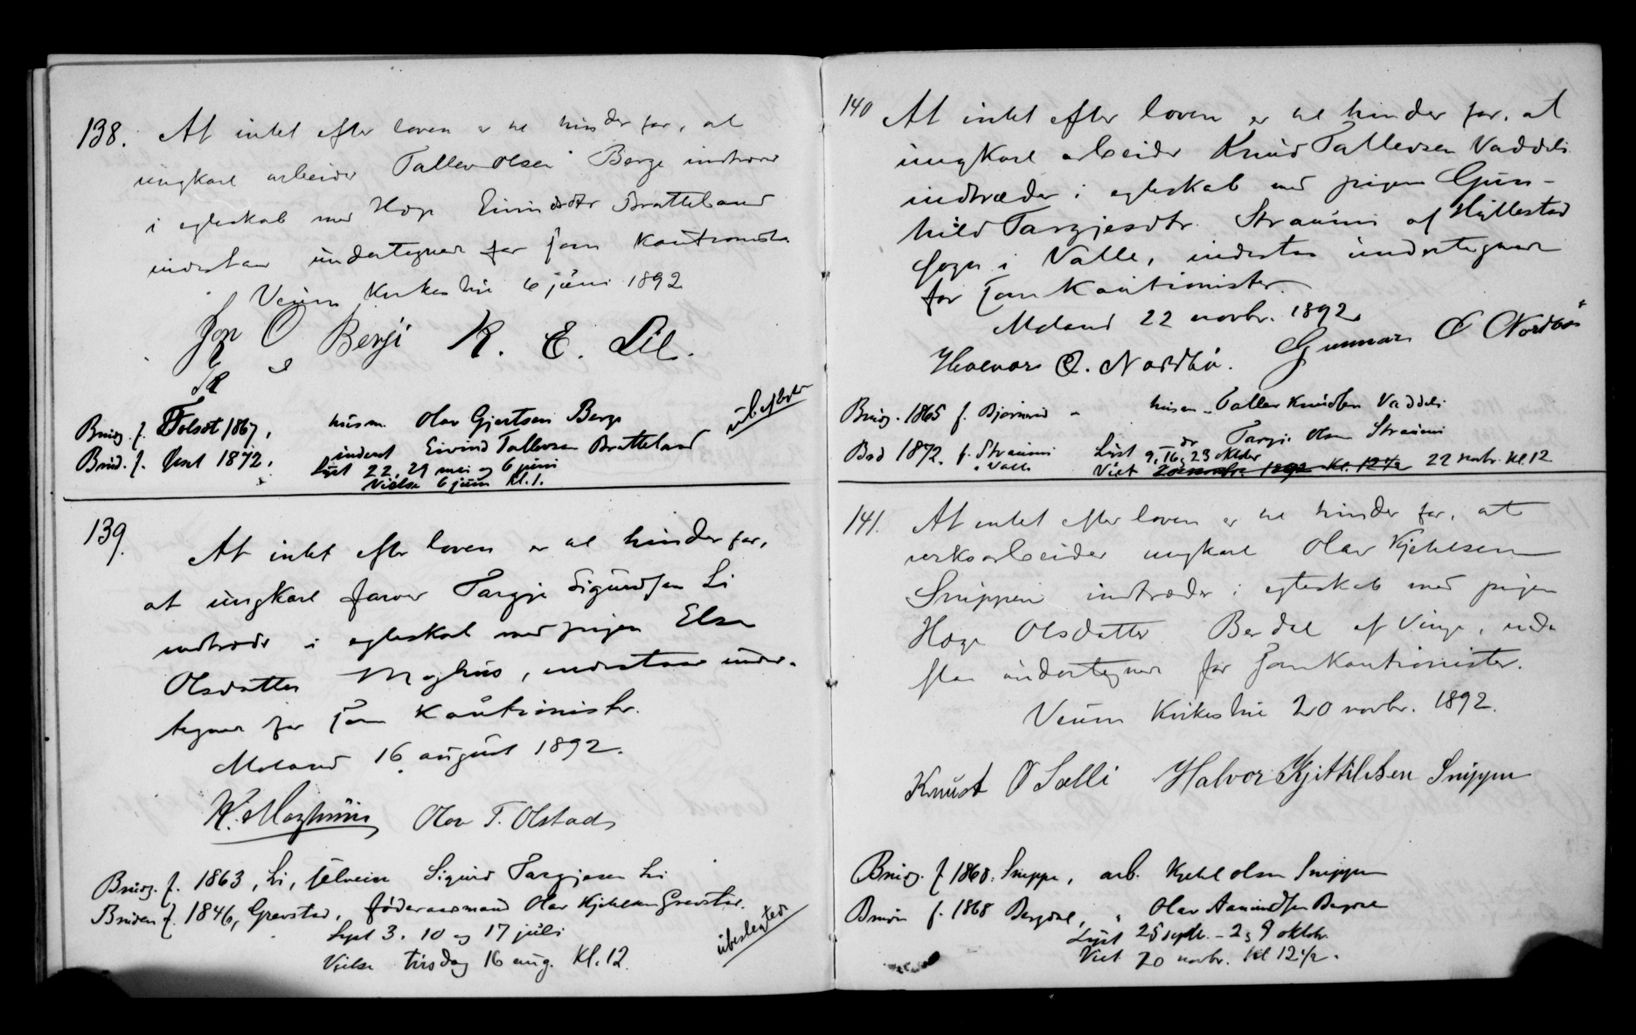 138. At intet efter loven er til hinder for, at
ungkarl arbeider Tallev Olsen Berge indtræder
i egteskab med Hæge Eivindsdtr Bratteland
indestaar undertegnede for som kautionister
Veum Kirkes hie 6 juni 1892
Jon O Bergi K. E. Lil.
Brudg. f. Tolsdt 1867, husm. Olav Gjertsen Berge
Brud. f. 1872. inderst Eivind Tallevsen Bratteland
Lyst 22, 29 mai og 6 juni
Vielse 6 juni Kl. 1.
ubeslegtede
139.
At intet efter loven er til hinder for,
at ungkarl farver Targje Sigurdsen Li
indtræder i egteskab med pigen Else
Olsdatter Moghus, indestaar under-
tegnede for som kautionister.
Moland 16 august 1892.
K. Moghuus Olav T. Olstad
Brudg. f. 1863, Li, selveier Sigurd Targjesen Li
Bruden f. 1846, Grevstad, føderaadsmand Olav Kjetilsen Grevstad.
Lyst 3. 10 og 17 juli
Vielse tirsdag 16 aug. Kl. 12.
ubeslegtede
140 At intet efter loven er til hinder for, at
ungkarl arbeider Knud Tallevsen Vaddeli
indtræder i egteskab med pigen Gun-
hild Targjesdtr. Straume af Hyllestad
sogn i Valle, indestaa undertegnede
for som kautionister.
Moland 22 novbr. 1892.
Halvor O. Nordbø. Gunnar O Nordbø
Brudg. 1865 f. husm. Tallev Knudsen Vaddeli
Brd 1872. f. Straume i Valle dr Targje Olsen Straume
Lyst 9, 16, 23 oktober
Viet 22 novbr. Kl. 12
141. At intet efter loven er til hinder for, at
verksarbeider ungkarl Olav Kjetilsen
Snippen indtræder i egteskab med pigen
Hæge Olsdatter Berdal af Vinje, inde
staa undertegnede for som kautionister.
Veum Kirkes hie 20 novbr. 1892.
Knust O Salli Halvor Kjittilsen Snippen
Brudg. f 1868. Snippe, arb. Kjetil Olsen Snippen
Brudn f. 1868 Berdal, " Olav Aamundsen Berdal
Lyst 25 septb. - 2 og 9 oktbr.
Viet 20 novbr. Kl 12½.